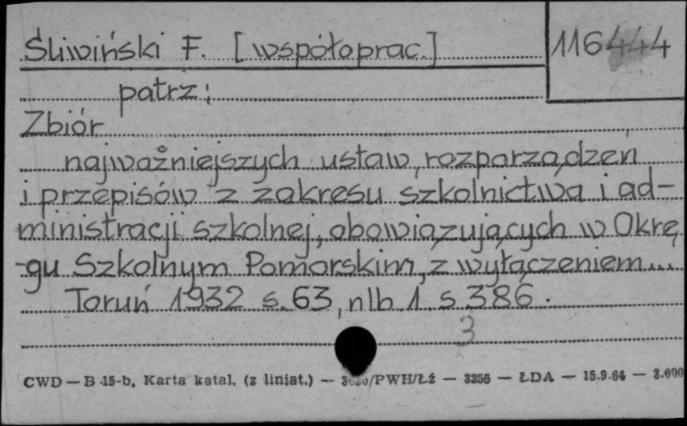 Śliwiński F. [współoprac.] 116444
patrz:
Zbiór
najważniejszych ustaw, rozporządzeń
i przepisów z zakresu szkolnictwa i ad-
ministracji szkolnej, obowiązujących w Okrę
-gu Szkolnym Pomorskim, z wyłączeniem...
Toruń 1932 s. 63, nlb 1 s 386.
3
CWD — B 15-b, Karta katal. (z liniat.) — /PWH/Łź — 3256 — ŁDA — 15.9.64 —